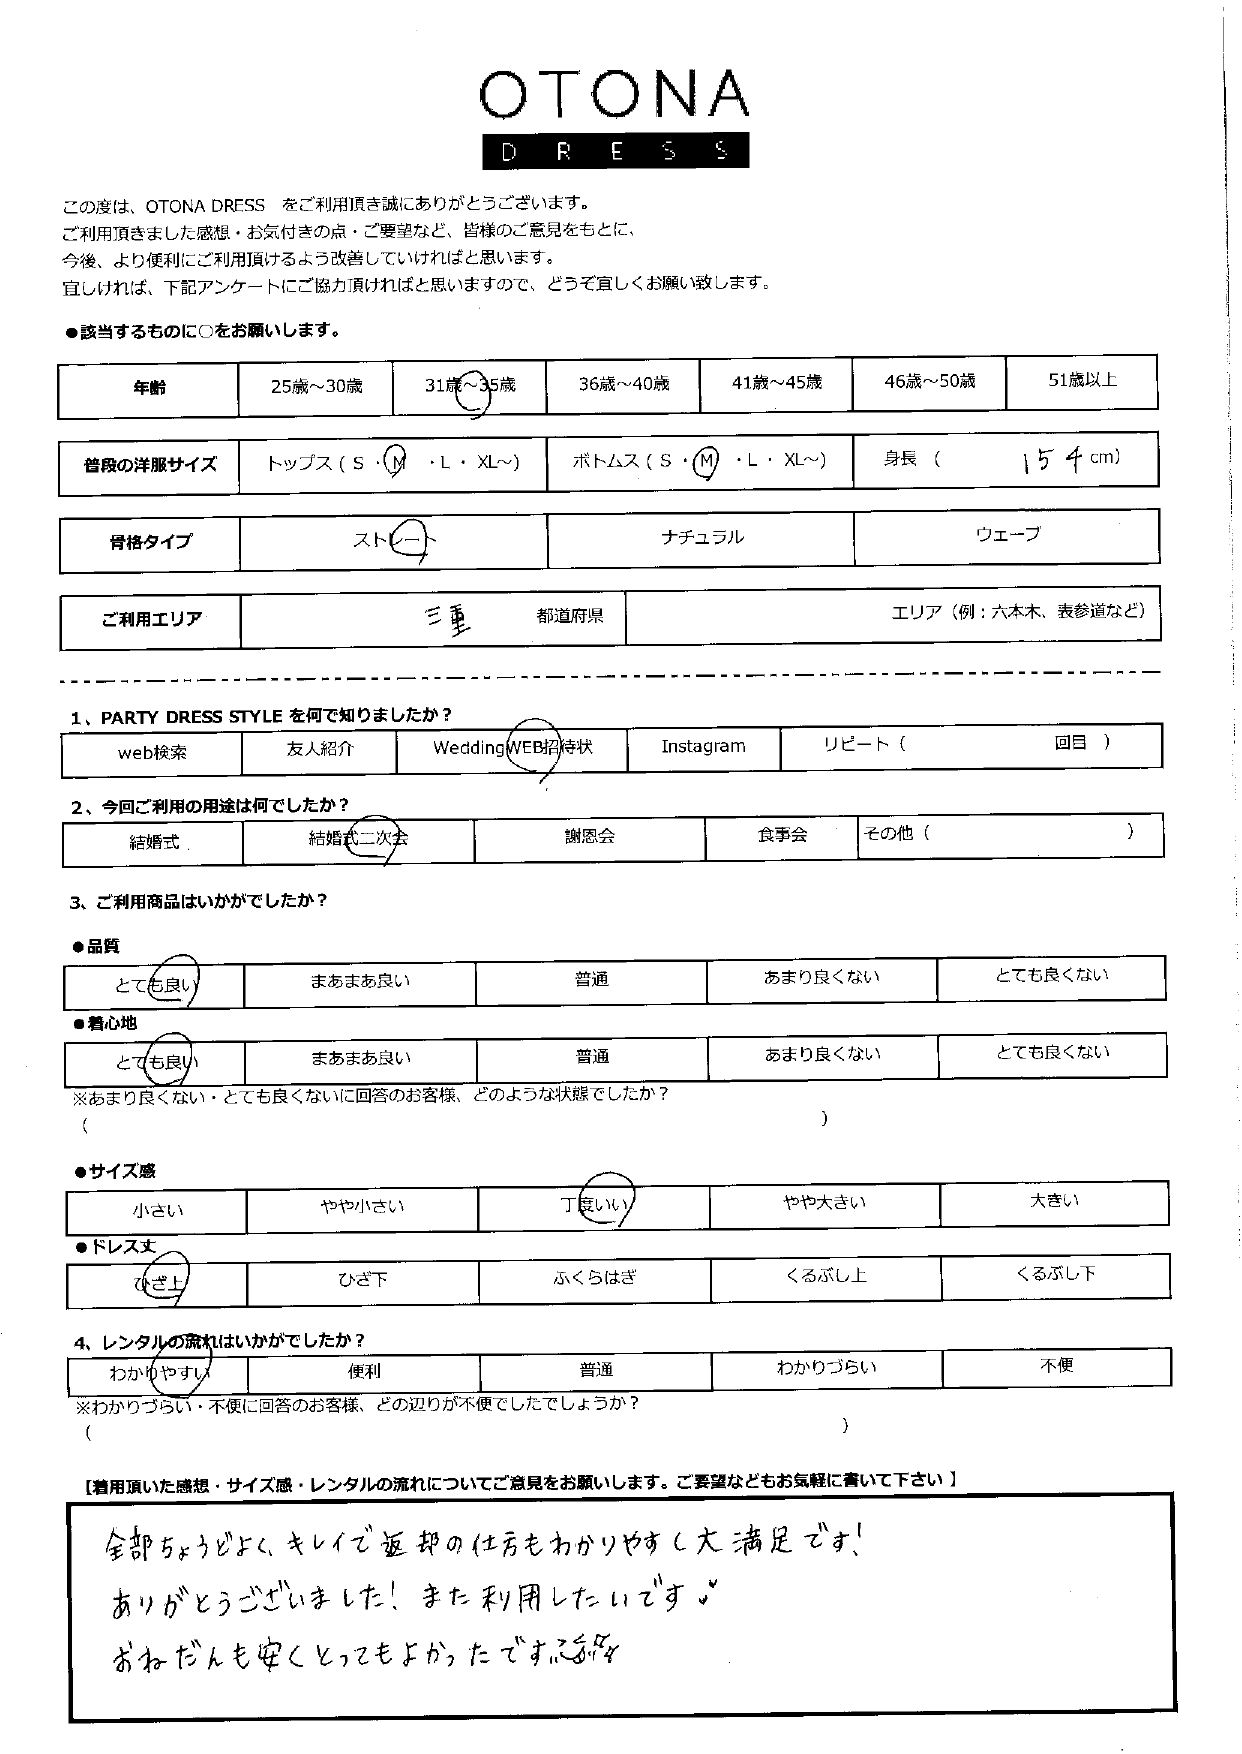 OTONA
DRESS
この度は、OTONA DRESS　をご利用頂き誠にありがとうございます。
ご利用頂きました感想・お気付きの点・ご要望など、皆様のご意見をもとに、
今後、より便利にご利用頂けるよう改善していければと思います。
宜しければ、下記アンケートにご協力頂ければと思いますので、どうぞ宜しくお願い致します。
●該当するものに○をお願いします。
年齢 25歳～30歳 31歳～35歳 36歳～40歳 41歳～45歳 46歳～50歳 51歳以上
普段の洋服サイズ トップス（ S ・M ・L ・ XL～) ボトムス（ S ・M ・L ・ XL～) 身長 （ 154 cm）
骨格タイプ ストレート ナチュラル ウェーブ
ご利用エリア 三重 都道府県 エリア（例：六本木、表参道など）
1、PARTY DRESS STYLE を何で知りましたか？
web検索 友人紹介 WeddingWEB招待状 Instagram リピート（ 回目 ）
2、今回ご利用の用途は何でしたか？
結婚式 結婚式二次会 謝恩会 食事会 その他（ ）
3、ご利用商品はいかがでしたか？
●品質
とても良い まあまあ良い 普通 あまり良くない とても良くない
●着心地
とても良い まあまあ良い 普通 あまり良くない とても良くない
※あまり良くない・とても良くないに回答のお客様、どのような状態でしたか？
（ ）
●サイズ感
小さい やや小さい 丁度いい やや大きい 大きい
●ドレス丈
ひざ上 ひざ下 ふくらはぎ くるぶし上 くるぶし下
4、レンタルの流れはいかがでしたか？
わかりやすい 便利 普通 わかりづらい 不便
※わかりづらい・不便に回答のお客様、どの辺りが不便でしたでしょうか？
（ ）
【着用頂いた感想・サイズ感・レンタルの流れについてご意見をお願いします。ご要望などもお気軽に書いて下さい 】
全部ちょうどよく、キレイで返却の仕方もわかりやすく大満足です!
ありがとうございました! また利用したいです
おねだんも安くとってもよかったです